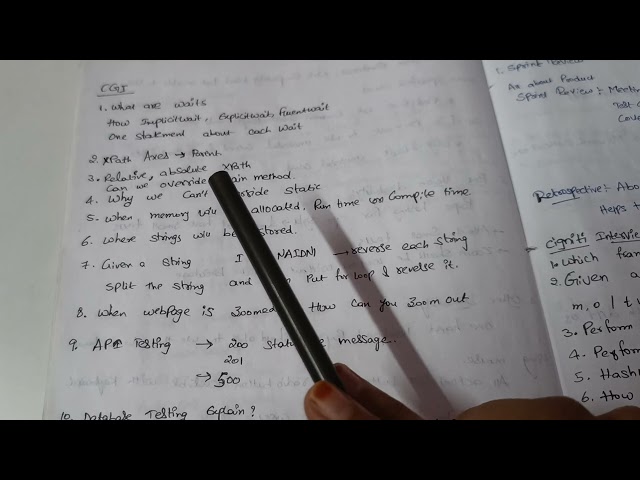 CGI
1. What are waits
How Implicitwait, Explicitwait, Fluentwait
One Statement about each wait
2. XPath Axes → Parent
3. Relative, absolute XPath
Can we override main method.
4. Why we Can't override static
5. When memory will allocated. Run time or Compile time
6. Where strings will be stored.
7. Given a string I NAIDU → reverse each string
split the string and Put for loop & revelse it.
8. When webpage is zoomed How can you zoom out
9. API Testing → 200 status message.
201
→ 500
10. Database Testing Explain?
1. Sprint Review
As about Product
Sprint Review :- Meeting
Retrospective :- Abo
Helps t
Cigniti Intervie
1. Which fram
2. Given a
m, o / t
3. Perform
4. Perfom
5. Hash
6. How